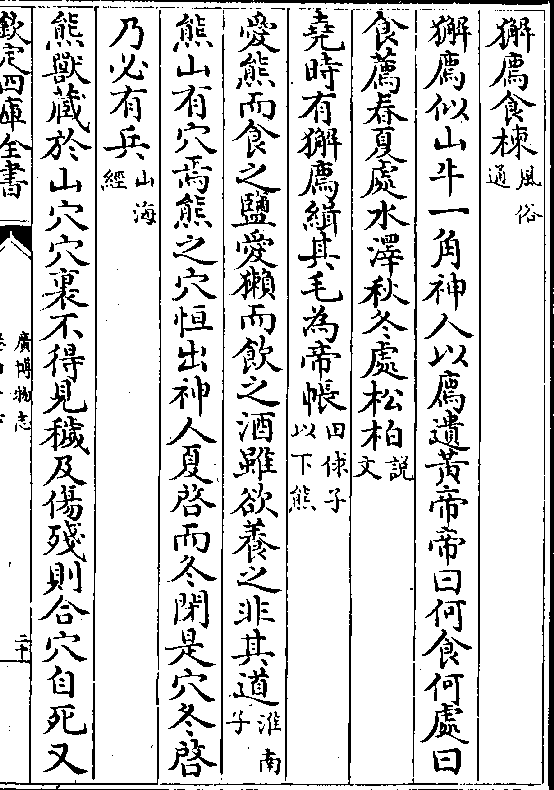 獬廌食楝風俗通
獬廌似山牛一角神人以廌遺黃帝帝曰何食何處曰
食薦春夏處水澤秋冬處松柏說文
堯時有獬廌緝其毛為帝帳田俅子以下熊
愛熊而食之鹽愛獺而飲之酒雖欲養之非其道淮南子
熊山有穴焉熊之穴恒出神人夏啓而冬閉是穴冬啓
乃必有兵山海經
熊獸藏於山穴穴裏不得見穢及傷殘則合穴自死又
欽定四庫全書
廣博物志
二十